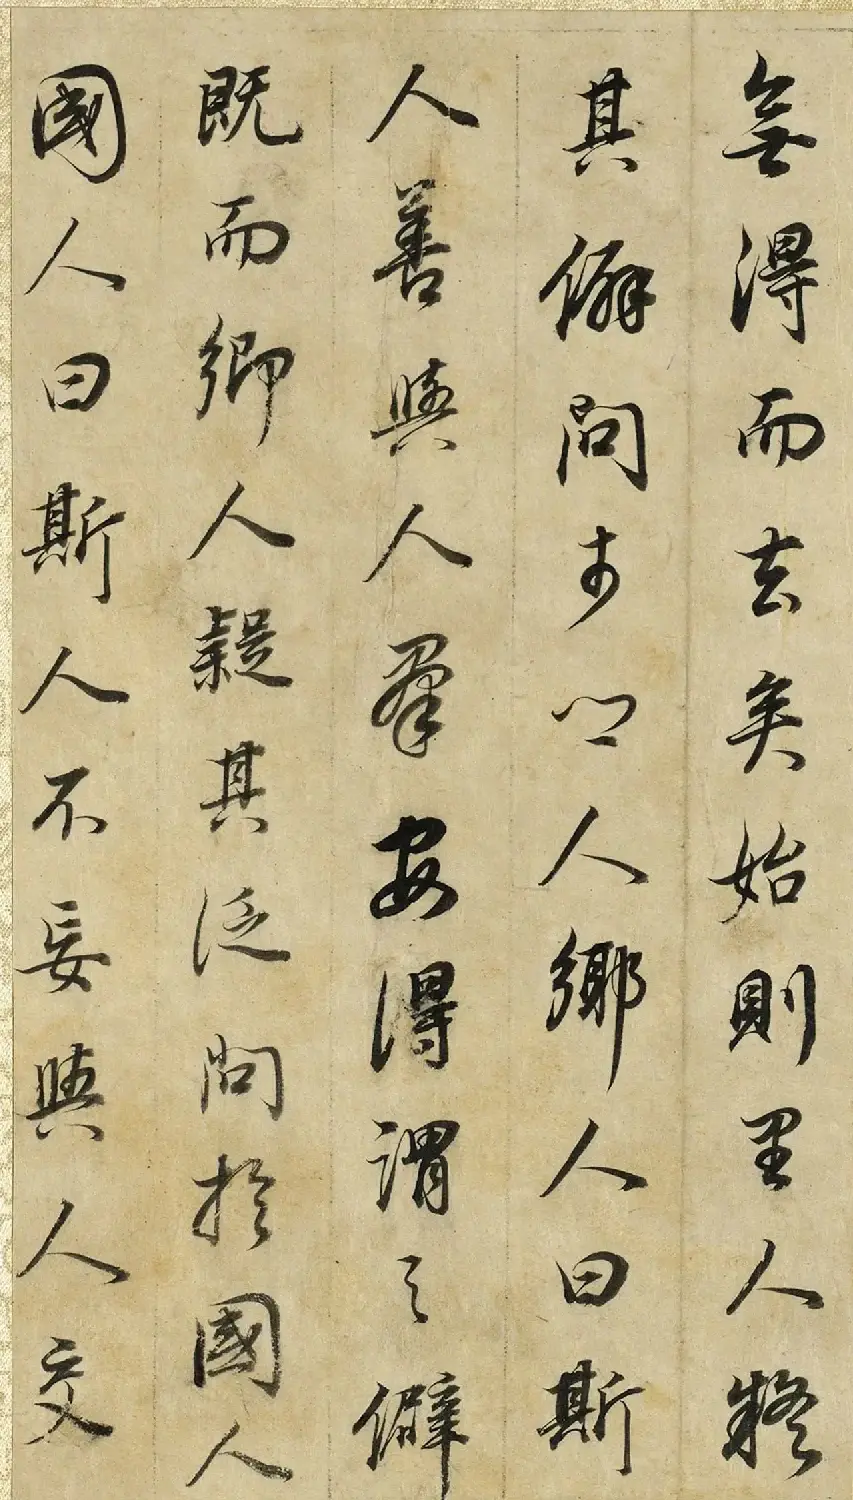 無得而去矣始則里人疑
其僻問於鄉人鄉人曰斯
人善與人羣安得謂之僻
既而鄉人疑其泛問於國人
國人曰斯人不妄與人交